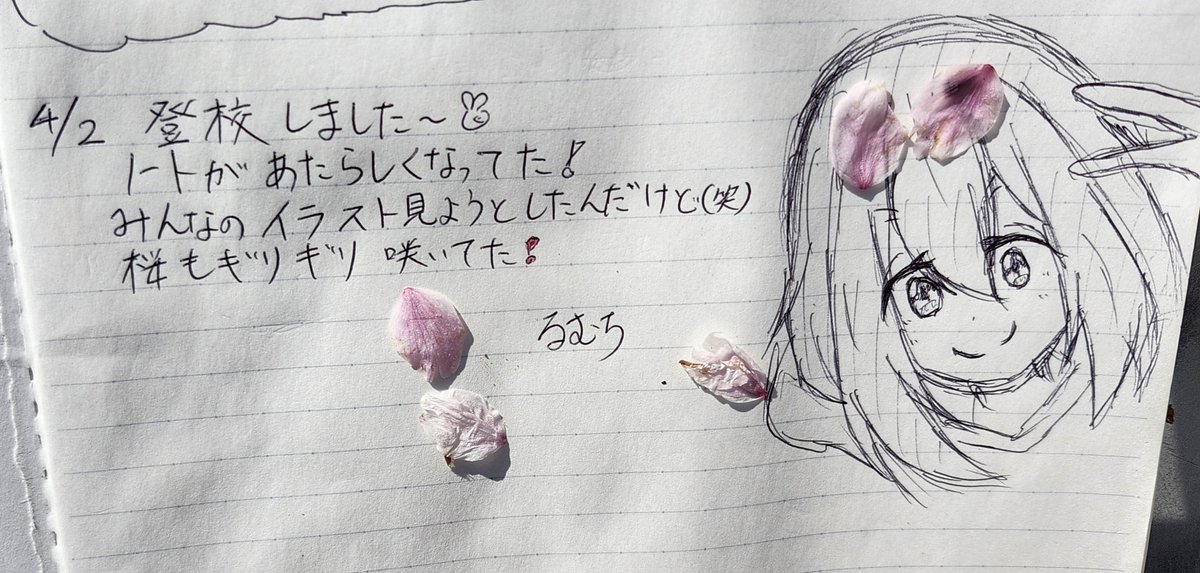 4/2 登校しました～
ノートがあたらしくなってた!
みんなのイラスト見ようとしたんだけど(笑)
桜もギリギリ咲いてた!
るむち